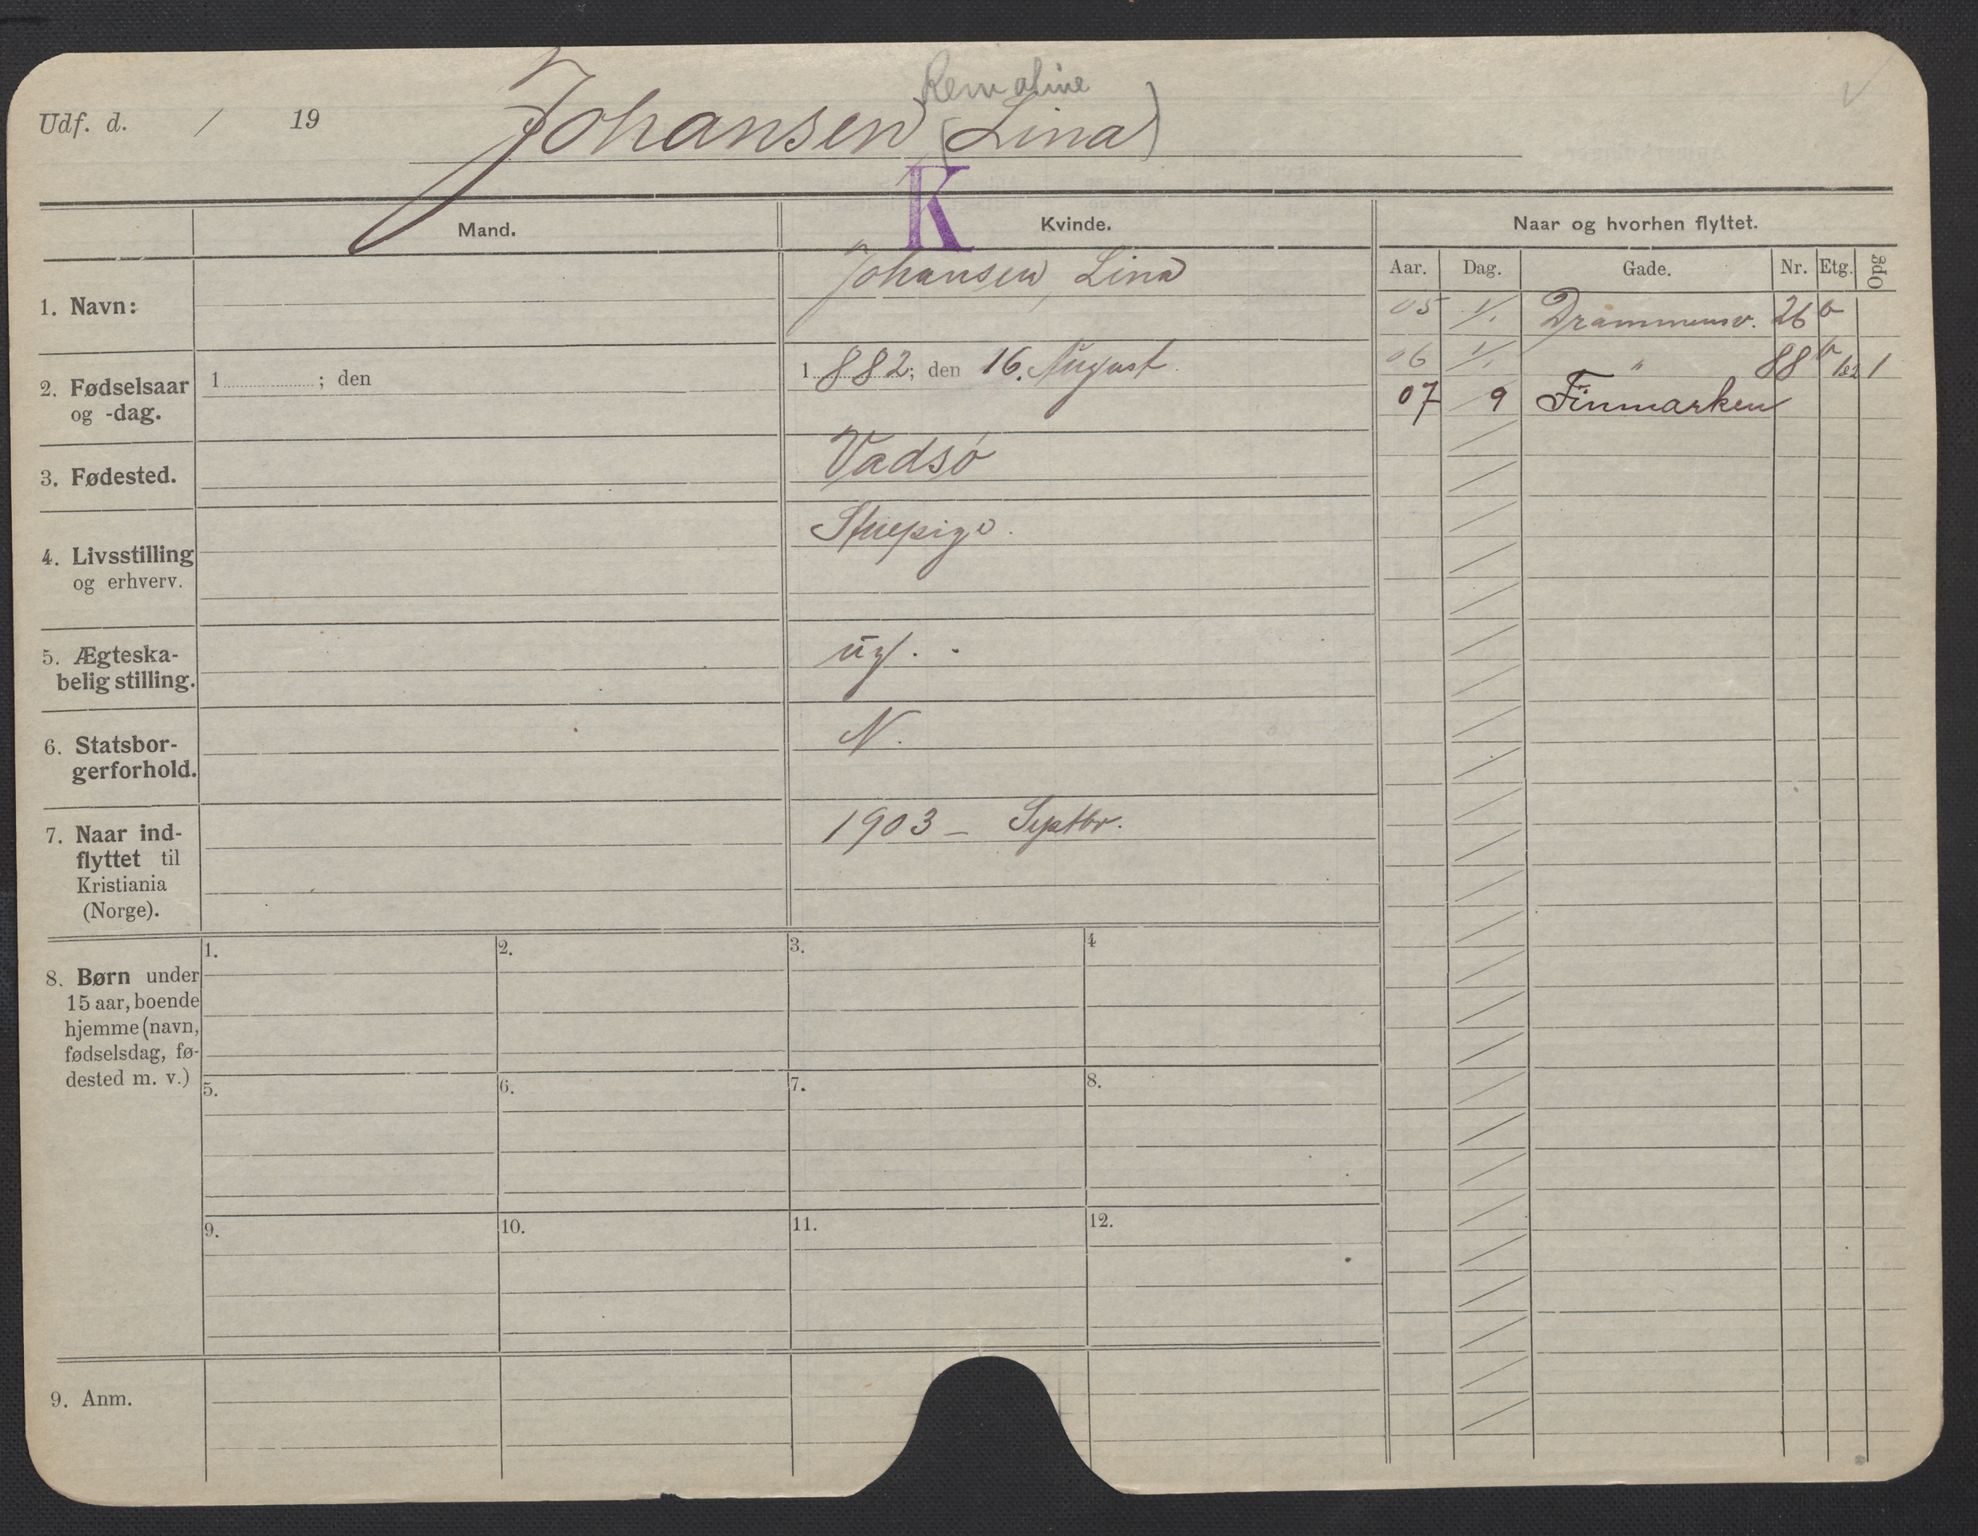 Udf. d. / 19
Johansen (Lina)
K
Mand.
Kvinde.
Naar og hvorhen flyttet.
Aar. Dag. Gade. Nr. Etg. Opg
1. Navn:
Johansen, Lina
05 1/1 Drammensv. 26 b
06 1/1 " 88 b 1 
07 / 9 Finmarken
2. Fødselsaar
og -dag.
1 ; den
1 882; den 16. August.
3. Fødested.
Vadsö
4. Livsstilling
og erhverv.
Stuepige.
5. Ægteska-
belig stilling.
ug. -
6. Statsbor-
gerforhold.
N.
7. Naar ind-
flyttet til
Kristiania
(Norge).
1903 - Septbr.
8. Børn under
15 aar, boende
hjemme (navn,
fødselsdag, fø-
dested m. v.)
1. 2. 3. 4
5. 6. 7. 8.
9. 10. 11. 12.
9. Anm.